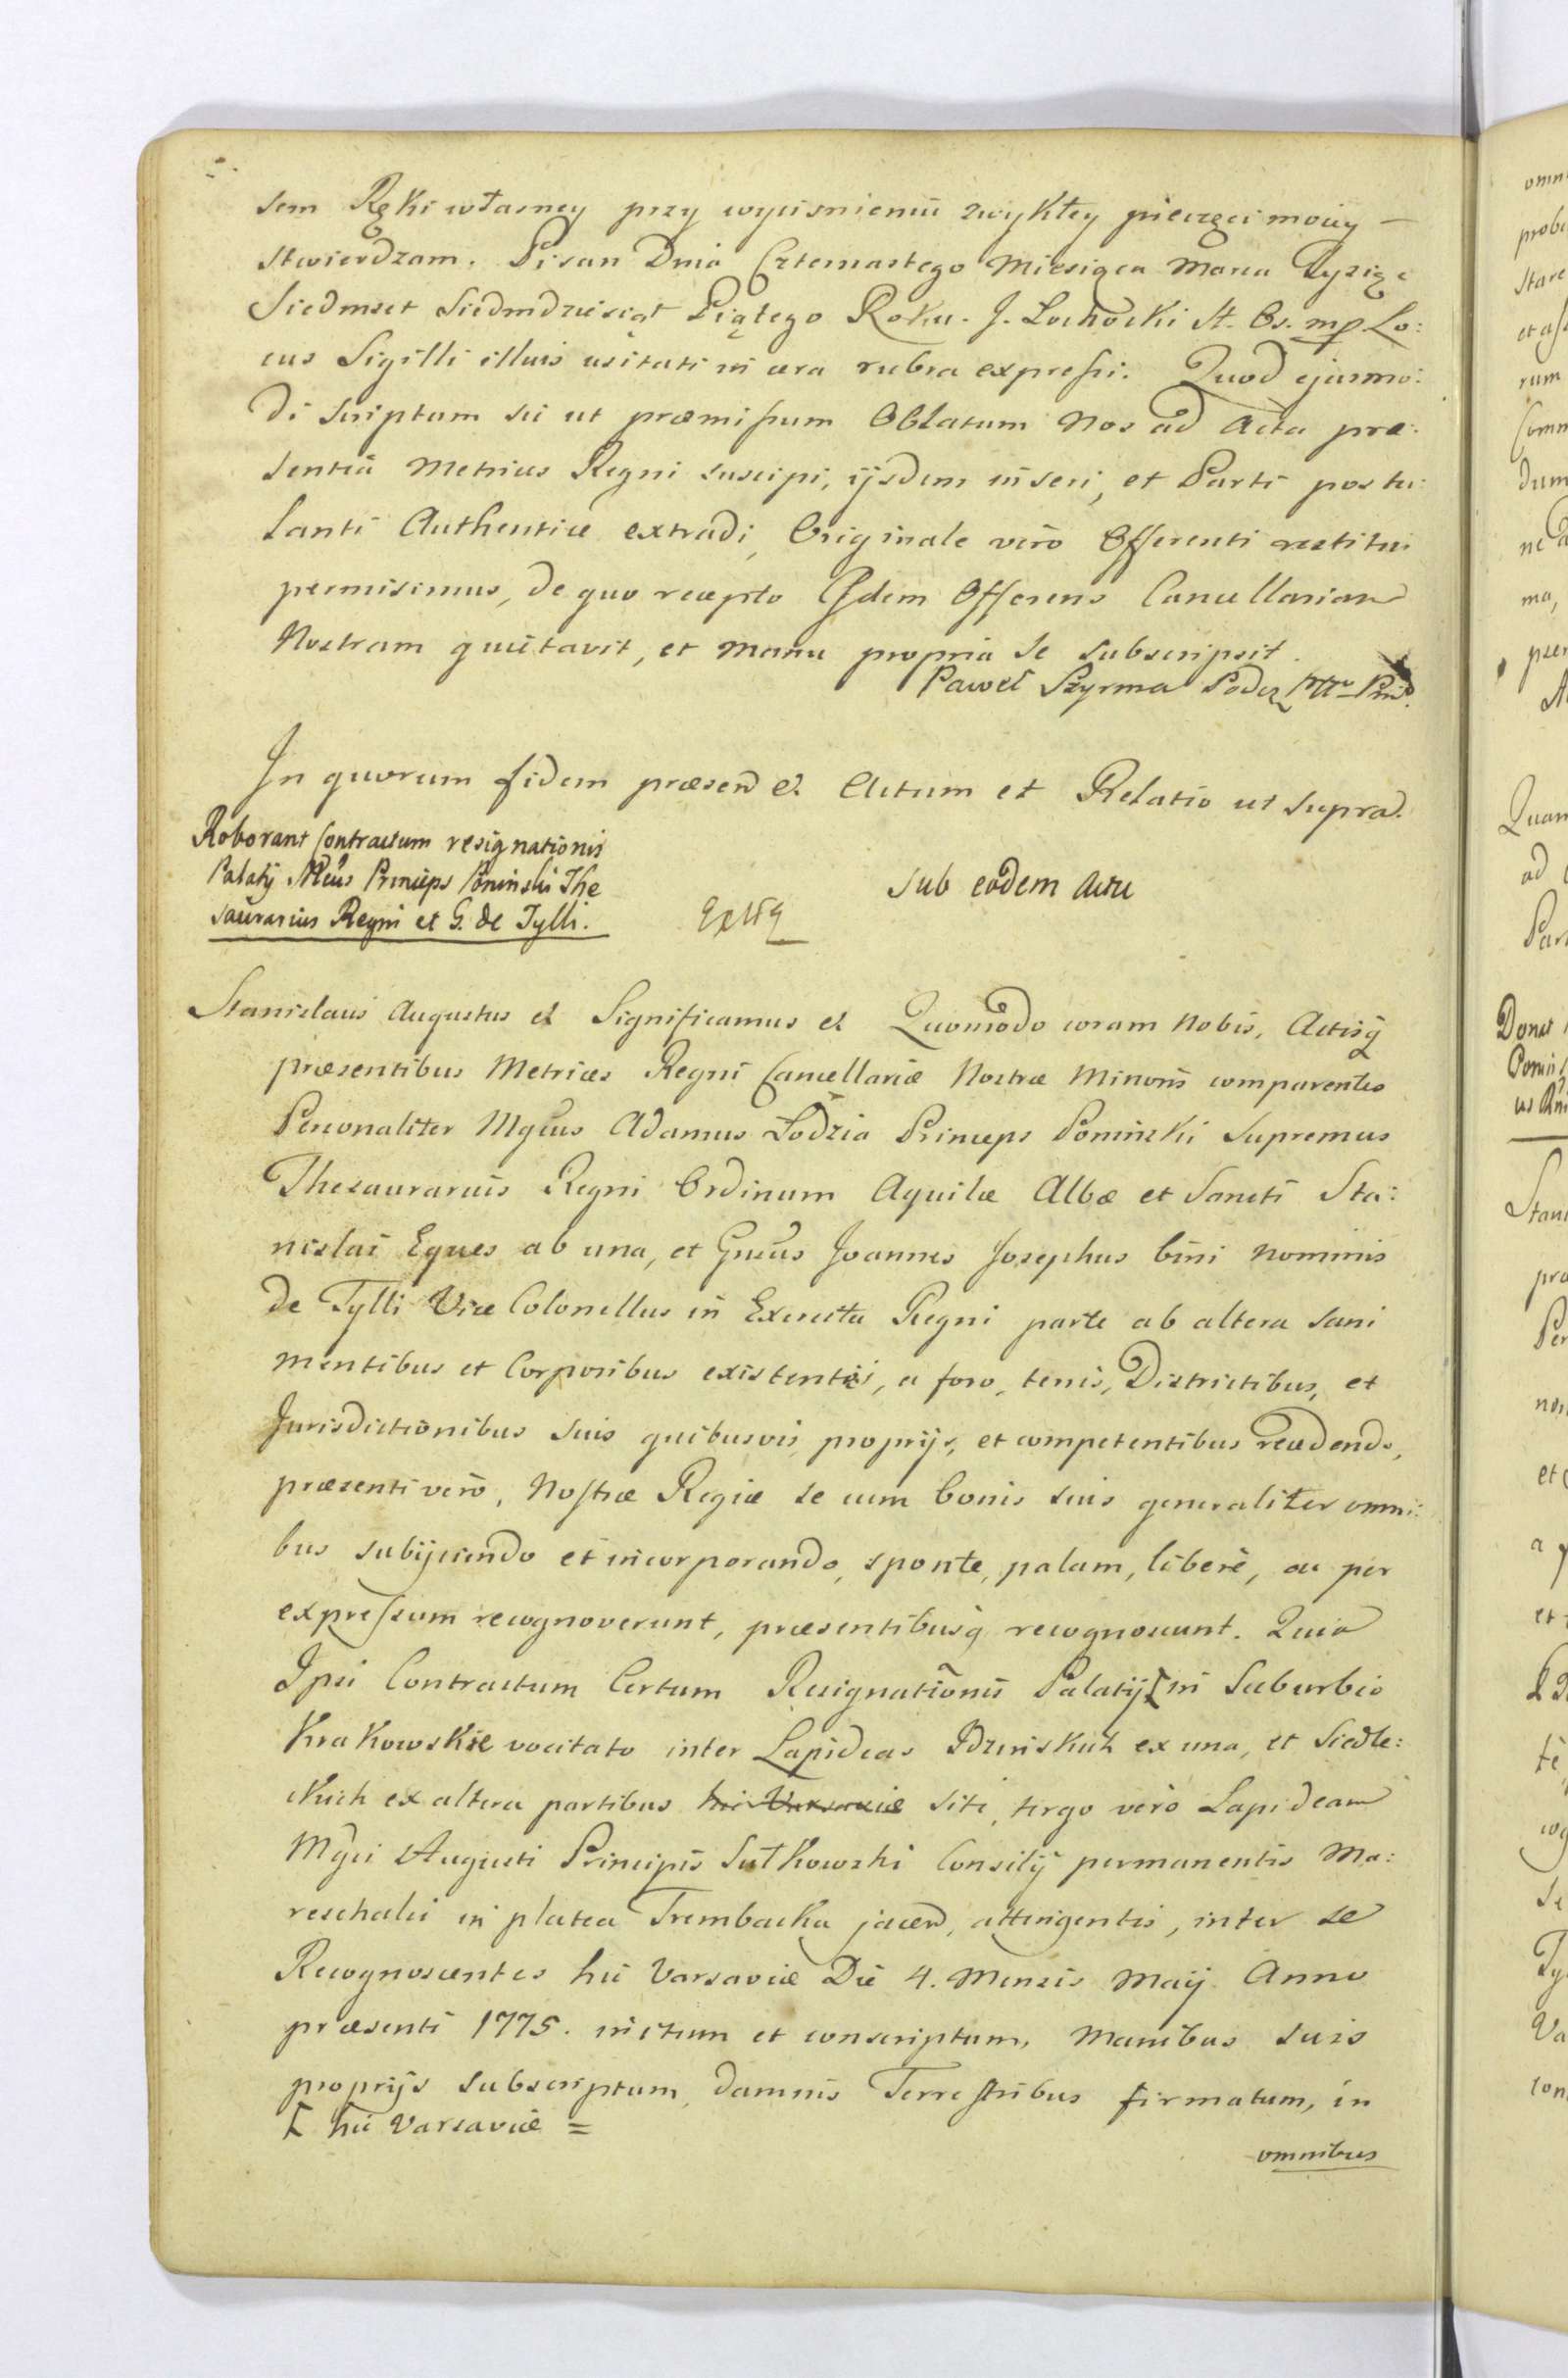 sem Ręki własney przy wyciśnieniu zwykłey pieczęci moiey –
stwierdzam. Pisan Dnia Czternastego Miesiąca Marca Tysiąc
Siedmset Siedmdziesiąt Piątego Roku. J. Lochocki St. Os. mp Lo:
cus Sigilli illius usitati in cera rubra expressi. Quod ejusmo:
di scriptum sic ut præmissum Oblatum Nos ad Acta præ:
sentia Metrices Regni suscipi, ijsdem inseri, et Parti postu:
lanti Authentice extradi, Originale verò Offerenti restitui
permisimus, de quo recepto Idem Offerens Cancellariam
Nostram quietavit, et manu propria se subscripsit.
Paweł Szyrma
In quorum fidem præsend et Actum et Relatio ut supra.
Roborant Contractum resignationis
Palatij Mcus Princeps Poninski The
saurarius Regni et G. de Tylli.
Sub eodem Actu
Stanislaus Augustus et Significamus et Quomodo coram Nobis, Actisq
præsentibus Metrices Regni Cancellariæ Nostræ Minoris comparentes
Personaliter Mgcus Adamus Łodzia Princeps Poninski Supremus
Thesaurarius Regni Ordinum Aquilæ Albæ et Sancti Sta:
nislai Eques ab una, et Gnrus Joannes Josephus bini nominis
de Tylli Vice Colonellus in Exercitu Regni parte ab altera sani
mentibus et Corporibus existentes, a foro, terris, Districtibus, et
Jurisdictionibus suis quibusvis proprijs, et competentibus recedendo,
præsenti verò, Nostræ Regiæ se cum bonis suis generaliter omni:
bus subijciendo et incorporando, sponte, palam, liberè, ac per
expressum recognoverunt, præsentibusq recognoscunt. Quia
Ipsi Contractum Certum Resignationis Palatij [in Suburbio
Krakowskie vocitato inter Lapideas Idzinskich ex una, et Siedle:
ckich ex altera partibus hic Varsaviæ siti, tergo verò Lapideam
Mgci Augusti Principis Sułkowski Consilij permanentis Ma:
reschalci in platea Trembacka jacen, attingentis, inter se
Recognoscentes hic Varsaviæ Die 4. Mensis Maij Anno
præsenti 1775. initum et conscriptum, Manibus suis
proprijs subscriptum, damnis Terrestribus firmatum, in
[ hic Varsaviæ =
omnibus